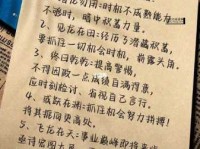 潜龙勿用:时机不成熟能力
不够时,暗中积蓄力量.
2、见龙在田:经历了潜藏积蓄,
要抓住一切机会时机,崭露头角.
3、终日乾乾:提高警惕,
不得因取一点成绩自满得意,
应时刻检讨、省视自己言行.
4、或跃在渊:抓住机会努力拼搏
将其振阅更高处.
5、飞龙在天:事业巅峰即将来